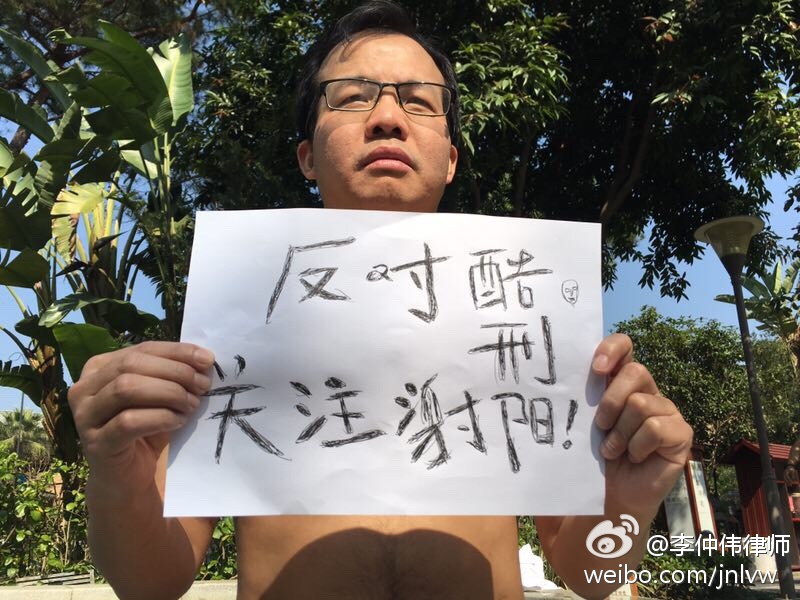 反对酷
刑
关注谢阳!
@李仲伟律师
weibo.com/jnlvw